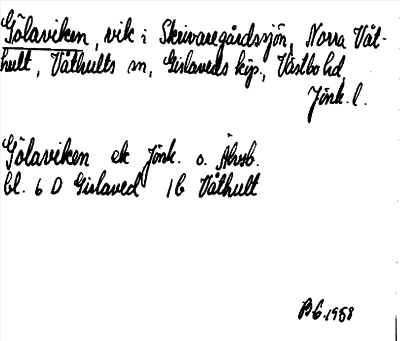 Gölaviken, vik i Skrivaregårdssjön, Norra Våt-
hult, Våthults sn, Gislaveds köp., Västbo hd,
Jönk. l.
Gölaviken ek Jönk. o. Älvsb.
bl. 6 D Gislaved 1 b Våthult
1958